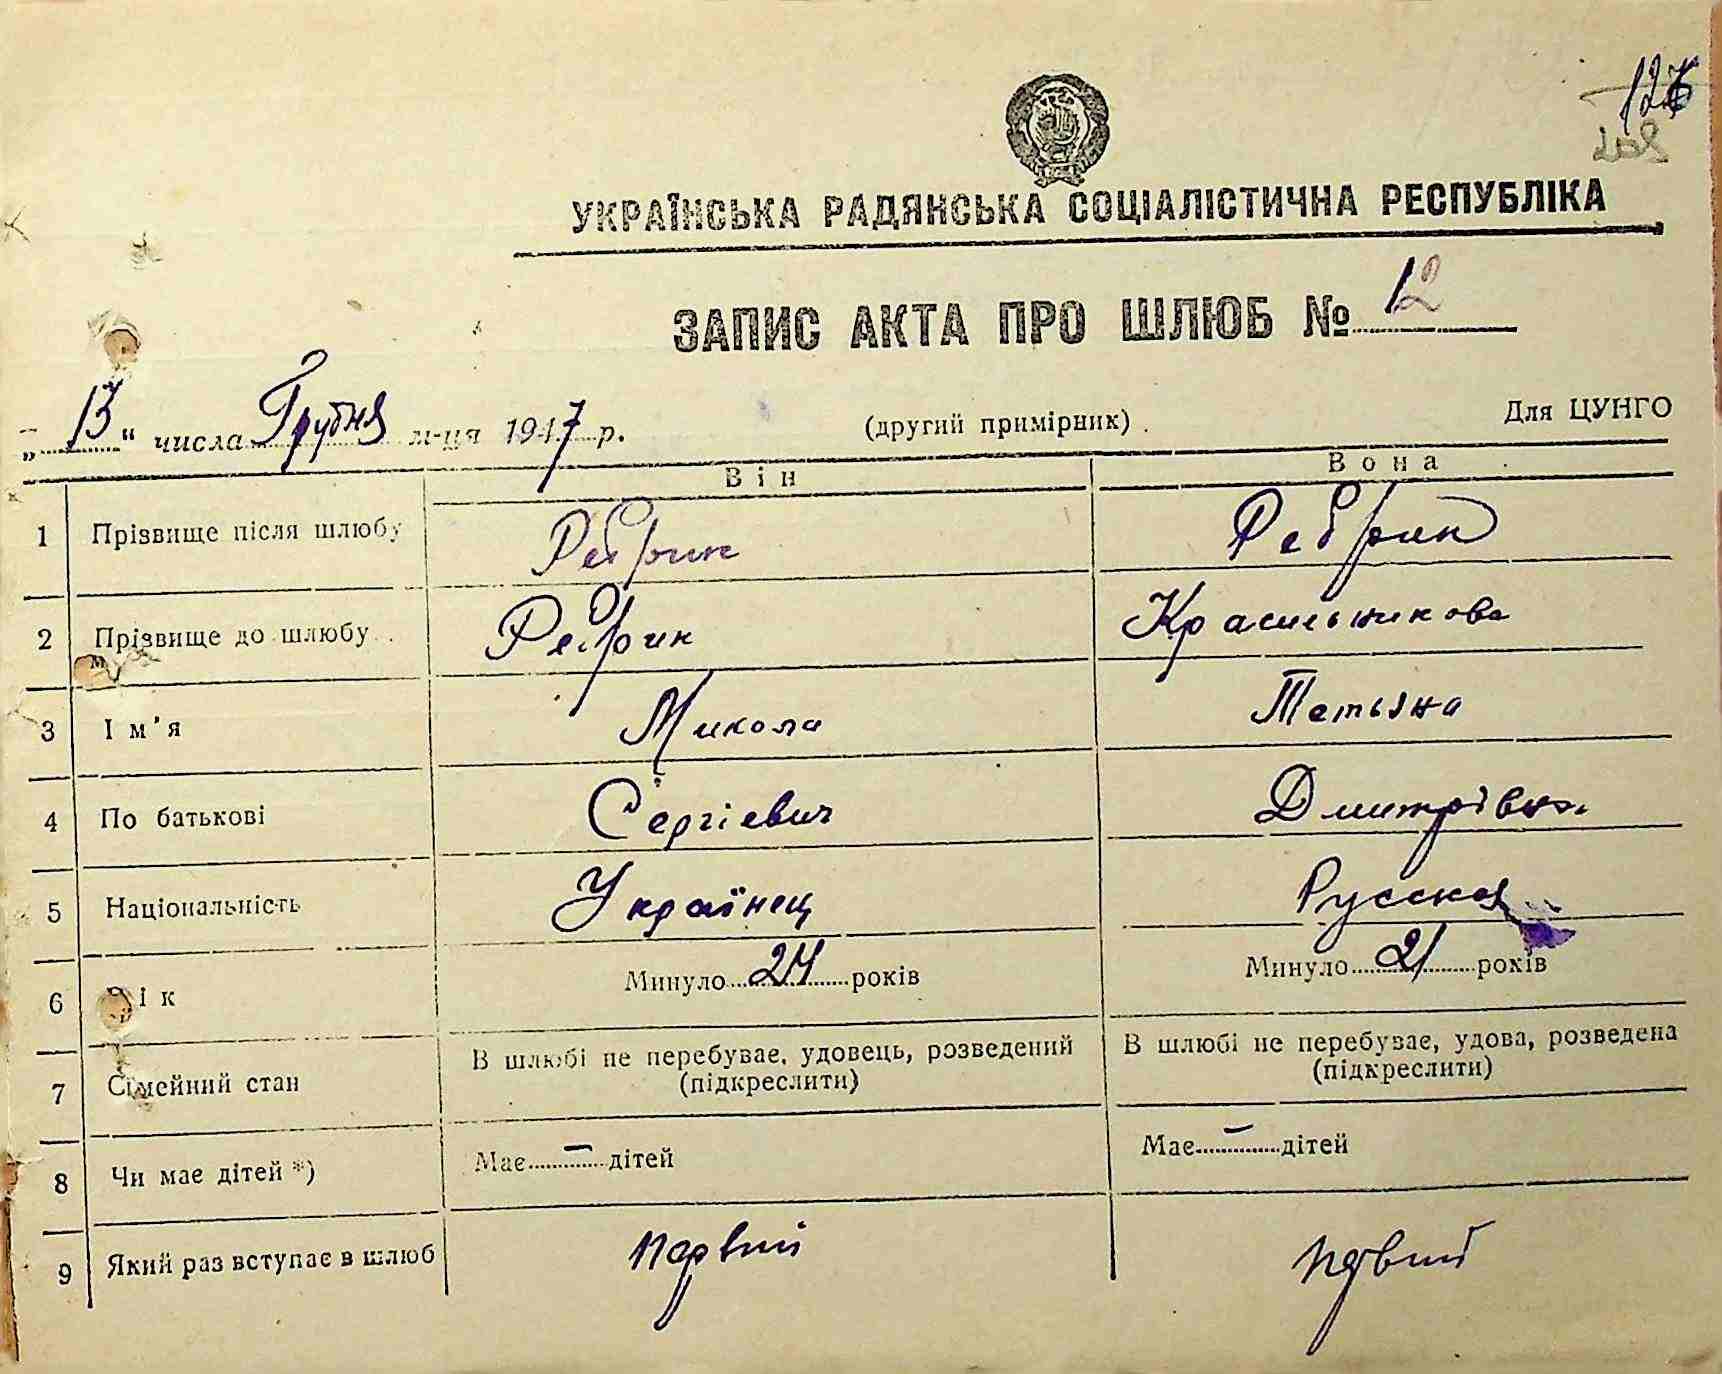 126
УКРАЇНСЬКА РАДЯНСЬКА СОЦІАЛІСТИЧНА РЕСПУБЛІКА
ЗАПИС АКТА ПРО ШЛЮБ № 12
„13“ числа Грудня м-ця 1947 р. (другий примірник). Для ЦУНГО
Він Вона
1 Прізвище після шлюбу Ребрик Ребрик
2 Прізвище до шлюбу Ребрик Красильникова
3 Ім'я Микола Тетьяна
4 По батькові Сергіевич Дмитрівна
5 Національність Українец Русская
6 Вік Минуло 24 років Минуло 21 років
7 Сімейний стан В шлюбі не перебуває, удовець, розведений (підкреслити) В шлюбі не перебуває, удова, розведена (підкреслити)
8 Чи має дітей *) Має — дітей Має — дітей
9 Який раз вступає в шлюб первий первий